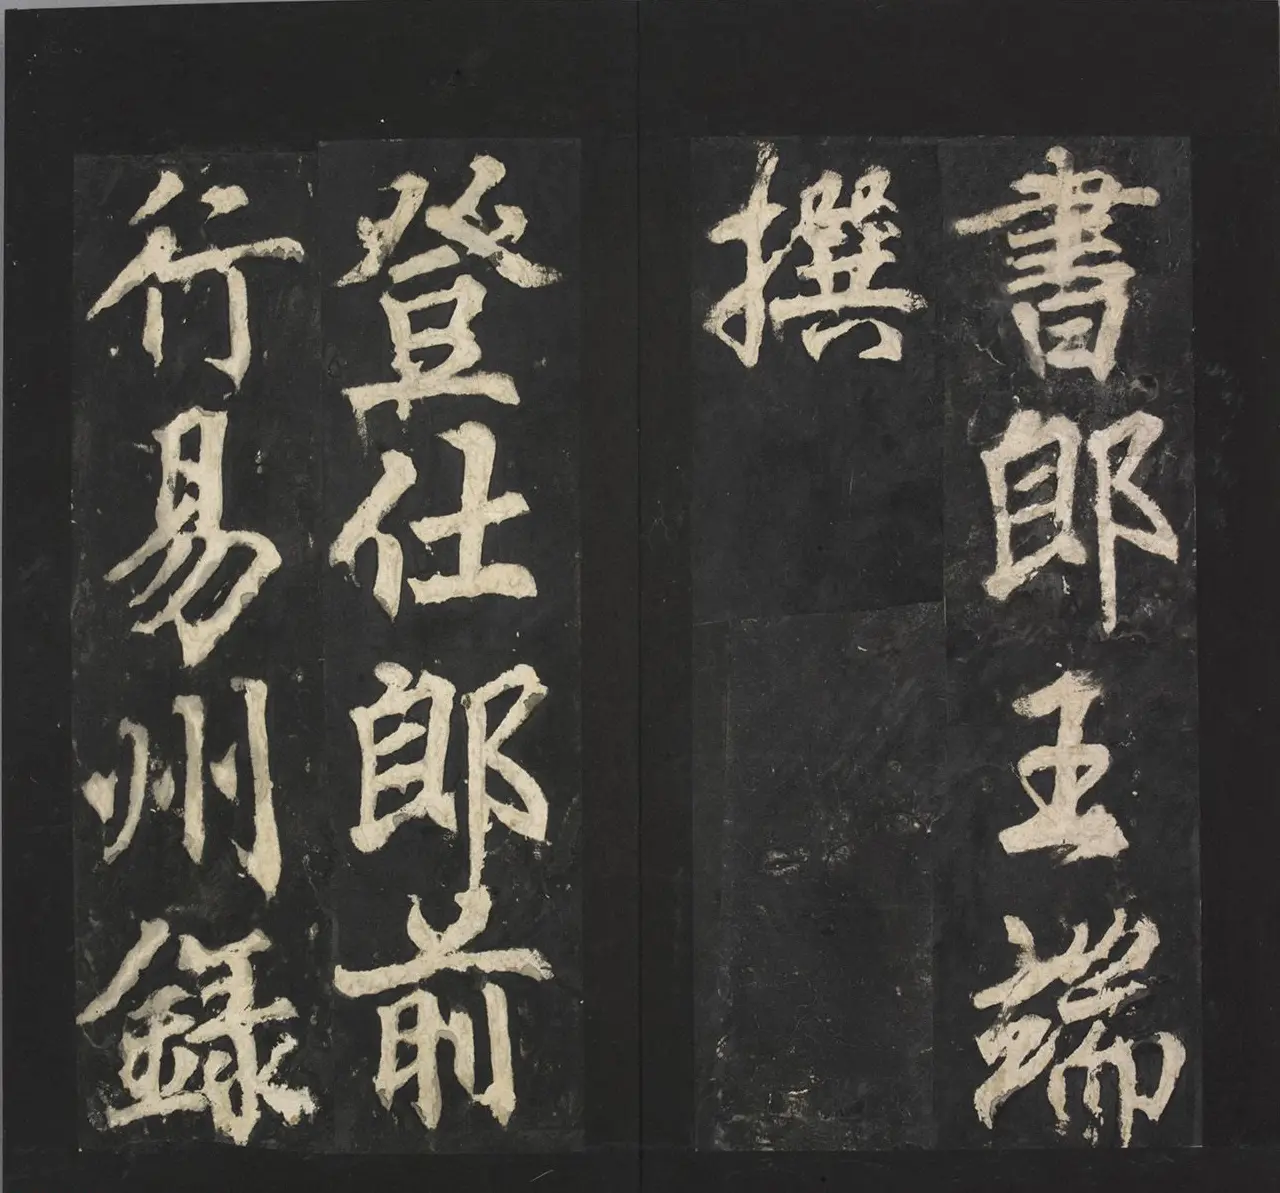 書郎王端
撰
登仕郎前
行易州録